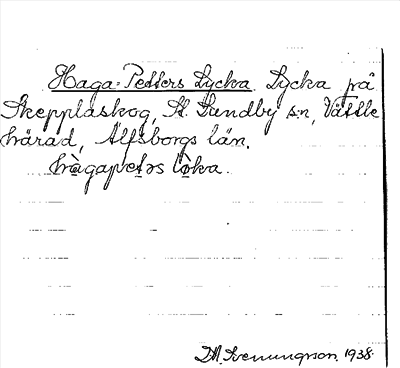 Haga-Petters Lycka. Lycka på
Skeppläskog, St. Lundby s:n, Vättle
härad, Älfsborgs län.
hàgapetəs lỳka.
1938.